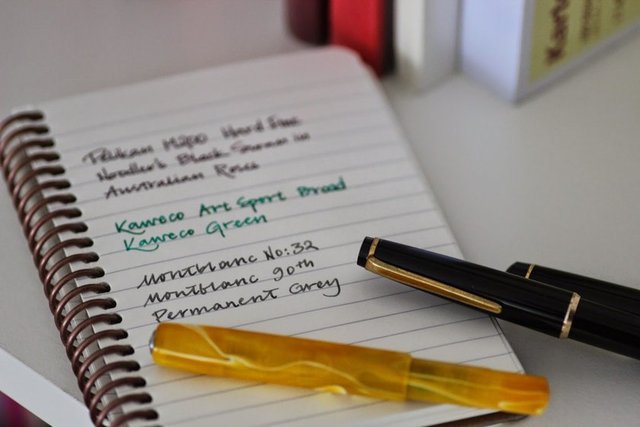 Pelikan M200 Hard Fine
Noodler's Black Swan in
Australian Roses
Kaweco Art Sport Broad
Kaweco Green
Montblanc No:32
Montblanc 90th
Permanent Grey